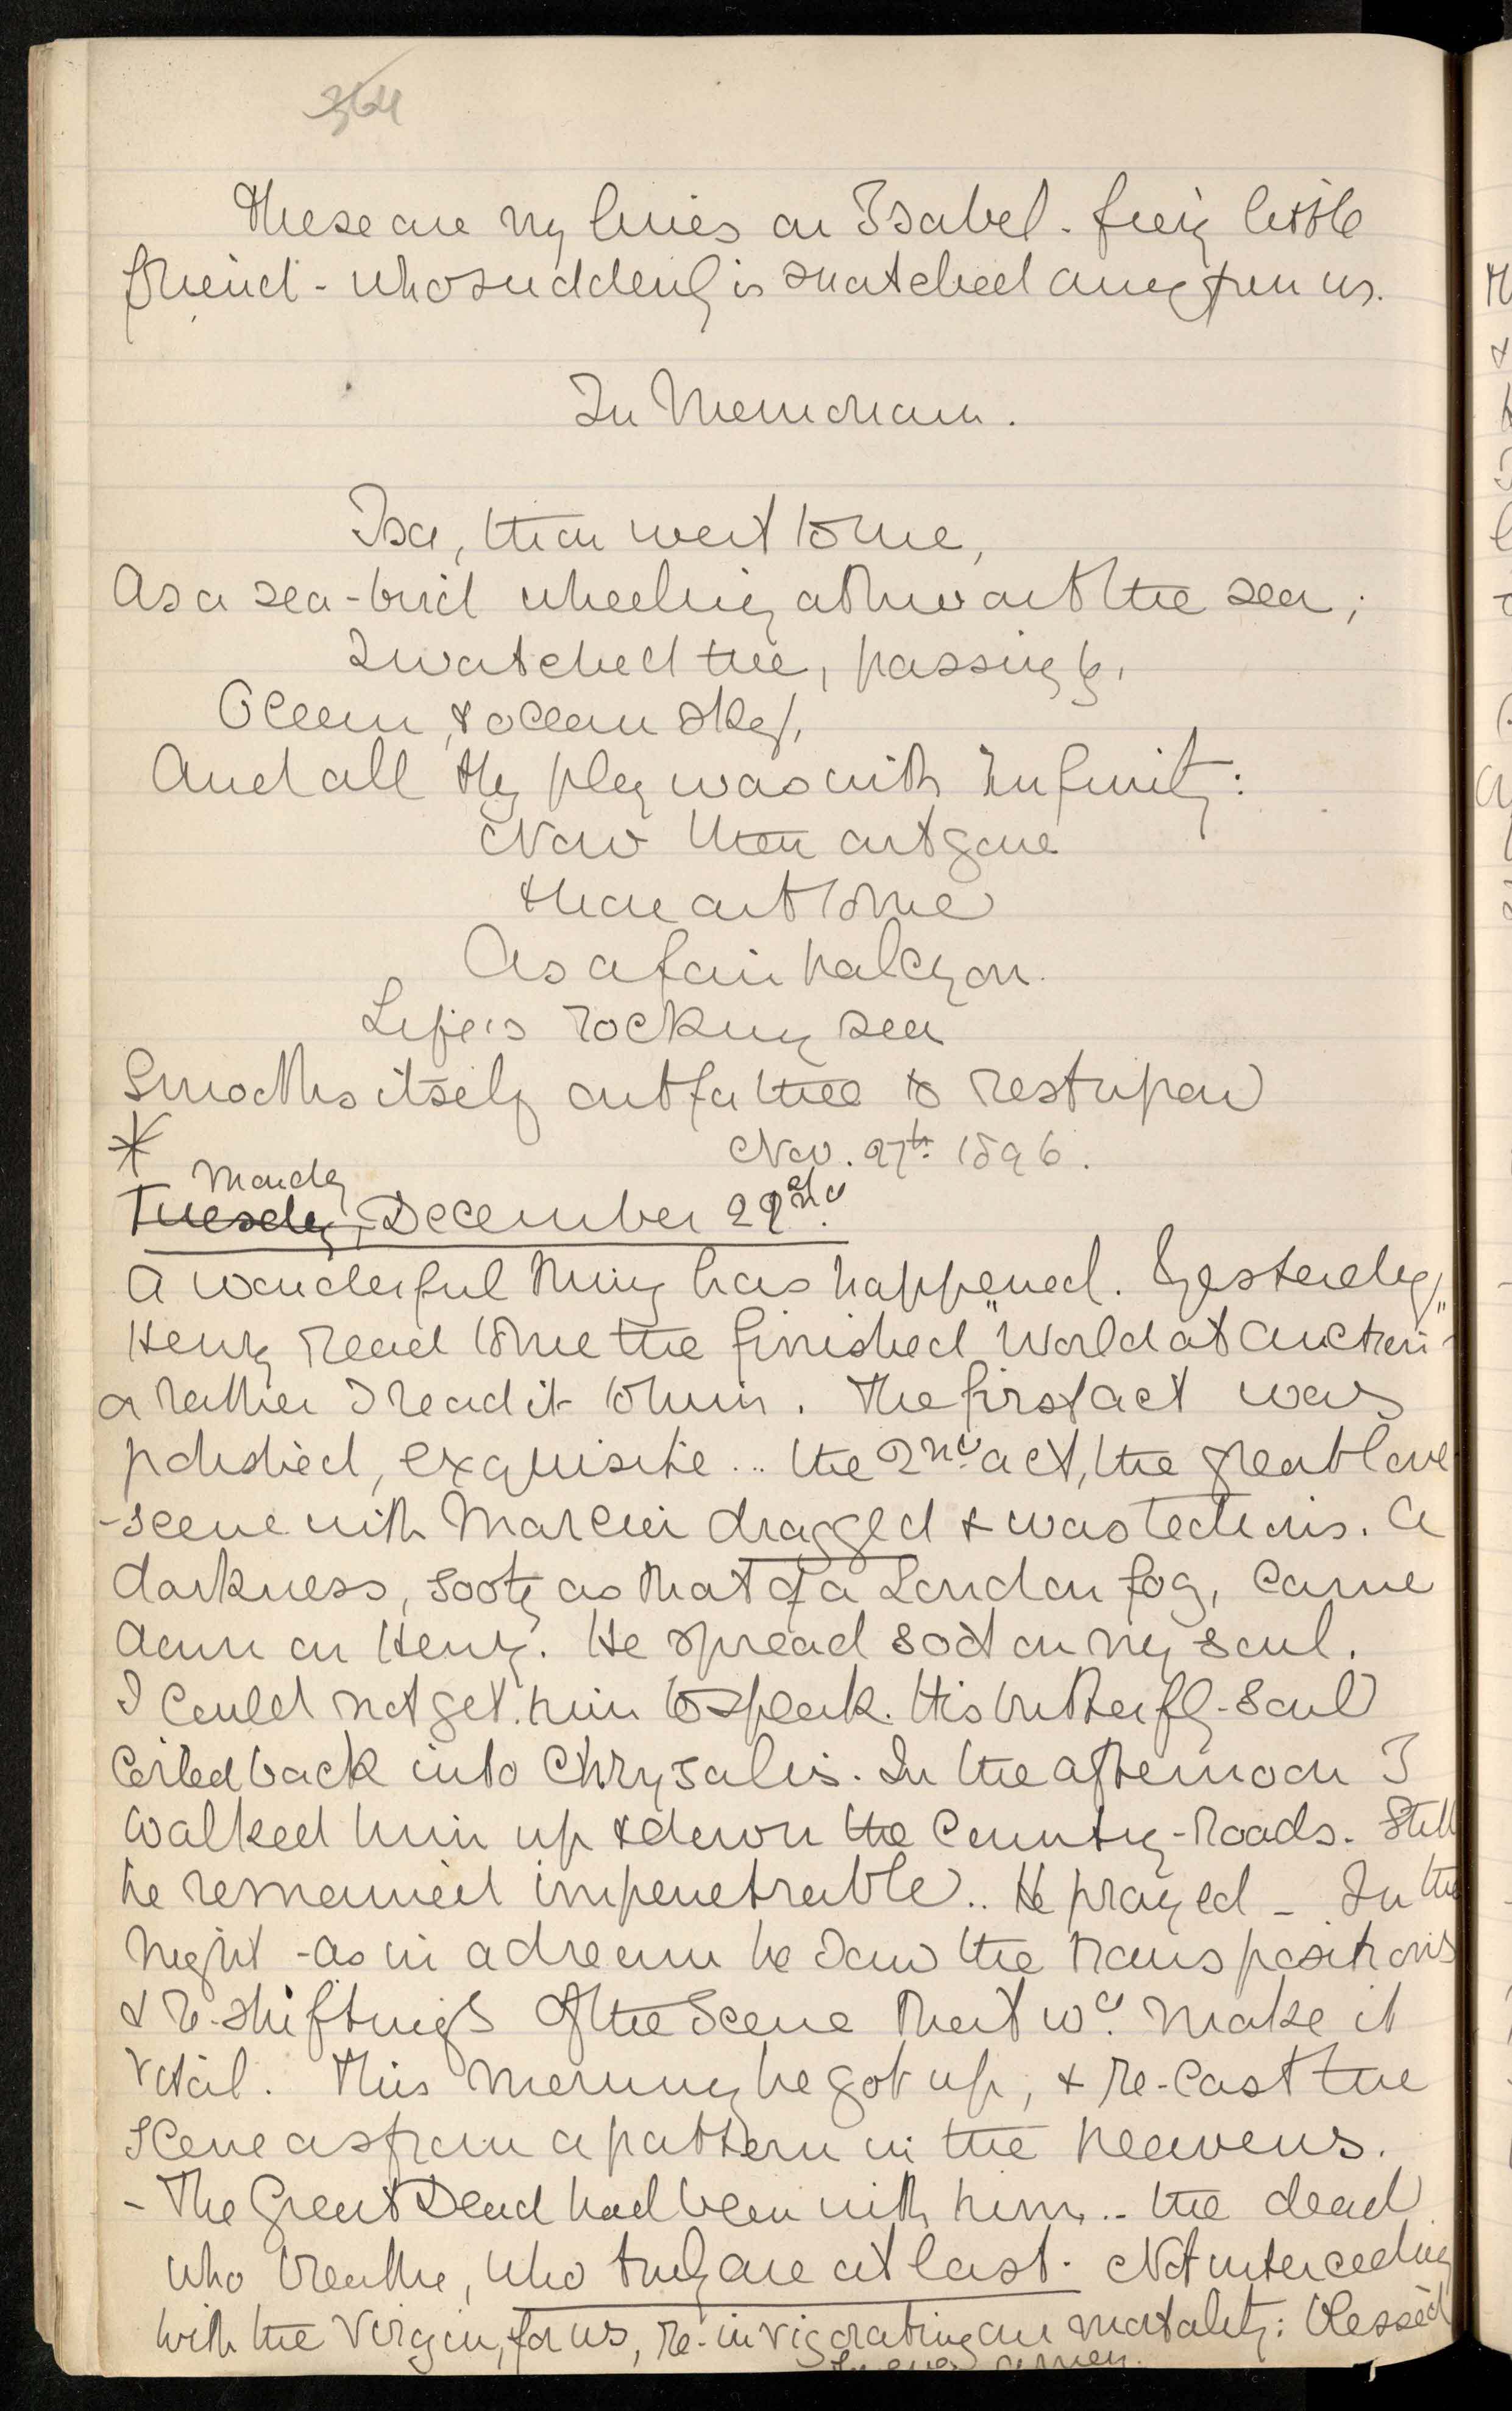 364
These are my lines on Isabel. fiery little
friend - who suddenly is snatched away from us.
In Memoriam.
Isa, thou wert to me,
As a sea-bird wheeling athwart the sea;
I watched thee, passing by,
Ocean, & ocean sky,
And all thy play was with Infinity:
Now thou art gone
thou art to me
As a fair halcyon.
Life's rocking sea
Smooths itself out for thee to rest upon
Nov. 27th 1896.
*
Monday
Tuesday, December 22nd
A wonderful thing has happened. Yesterday,
Henry read to me the finished "World at Auction"
or rather I read it to him. The first act was
polished, exquisite .. the 2nd act, the great love
-scene with Marcia dragged & was tedious. A
darkness, sooty as that of a London fog, came
down on Henry. He spread soot on my soul.
I could not get him to speak. His butterfly-soul
coiled back into chrysalis. In the afternoon I
walked him up & down the country-roads. Still
he remained impenetrable.. He prayed - In the
night - as in a dream he saw the transpositions
& re-shiftings of the scene that wd. make it
vital. This morning he got up, & re-cast the
scene as from a pattern in the heavens.
- The Great Dead had been with him .. the dead
who breathe, who truly are at last. Not interceding
with the Virgin, for us, re-invigorating our mortality: blessèd